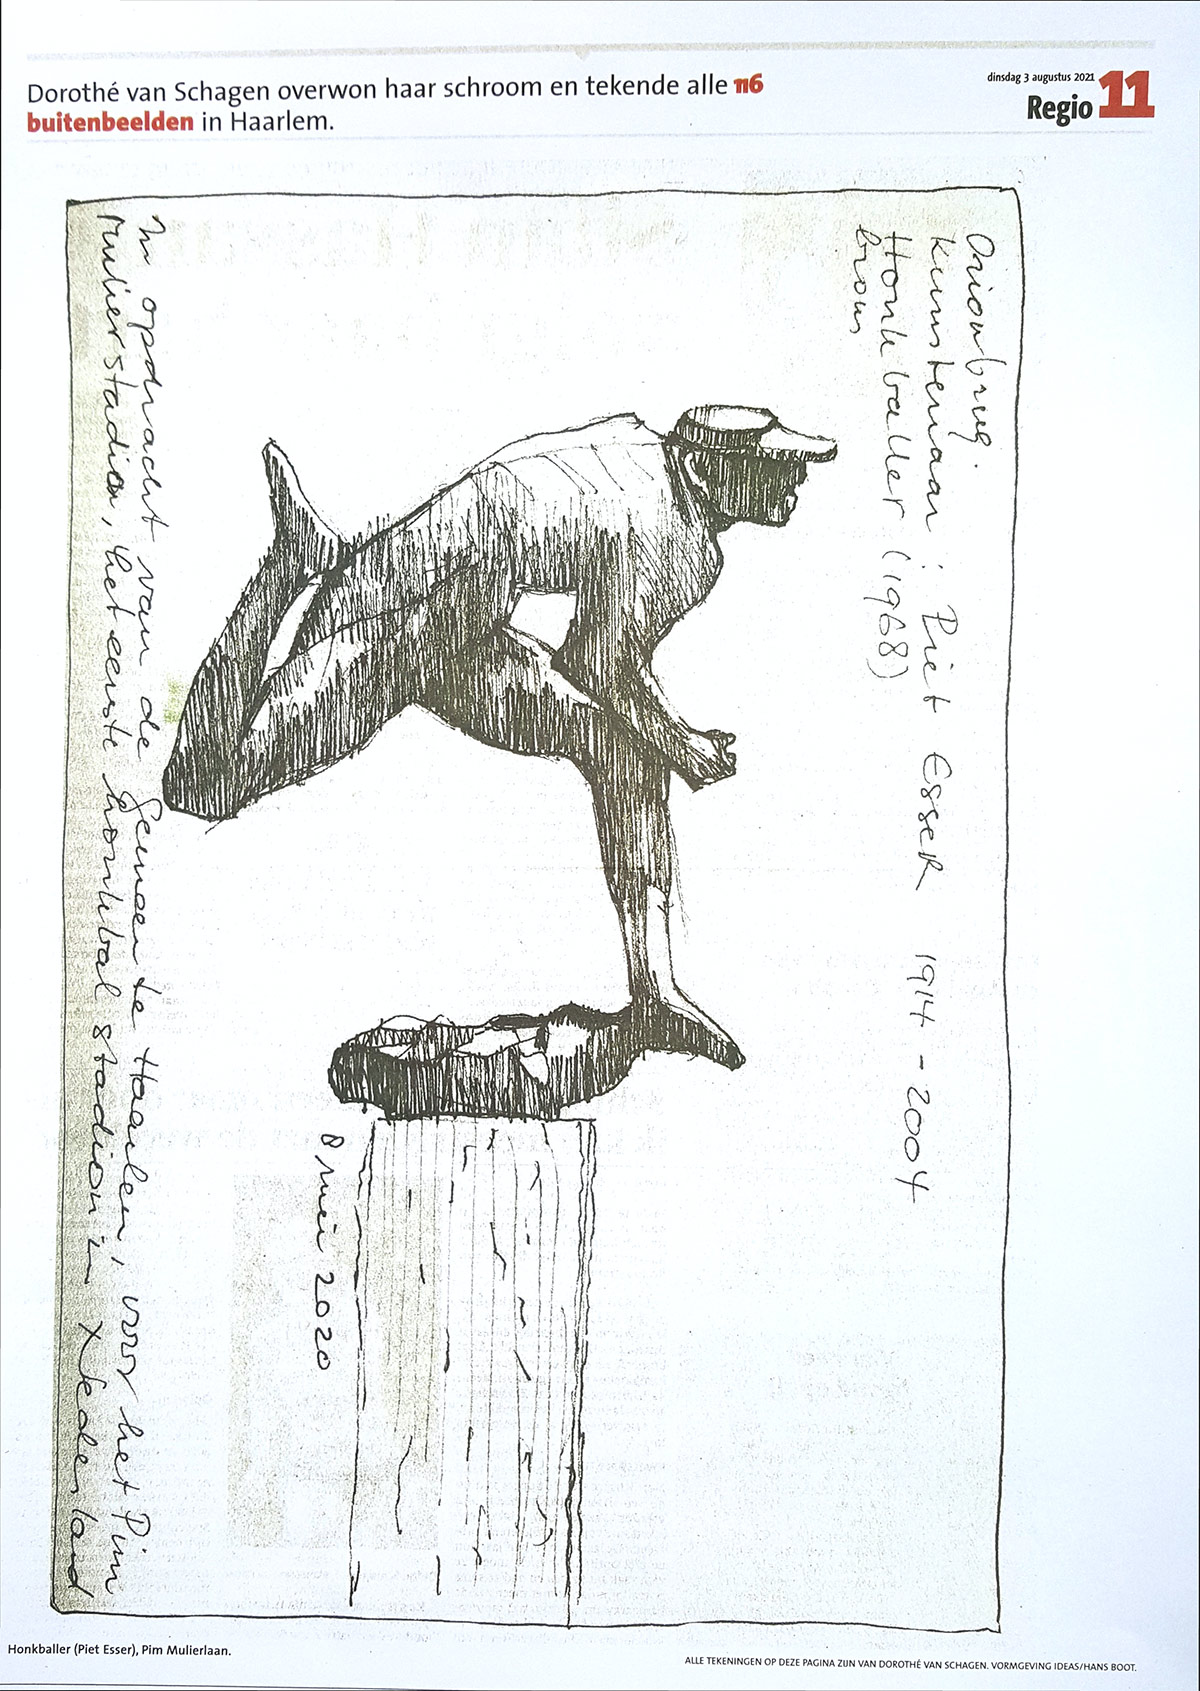 Dorothé van Schagen overwon haar schroom en tekende alle 116
buitenbeelden in Haarlem.
dinsdag 3 augustus 2021
Regio 11
Orionbrug.
Kunstenaar : Piet Esser 1914 - 2004
Honkballer (1968)
brons
8 mei 2020
In opdracht van de gemeente Haarlem, voor het Pim
Mulierstadion, het eerste honkbal stadion in Nederland
Honkballer (Piet Esser), Pim Mulierlaan.
ALLE TEKENINGEN OP DEZE PAGINA ZIJN VAN DOROTHÉ VAN SCHAGEN. VORMGEVING IDEAS/HANS BOOT.